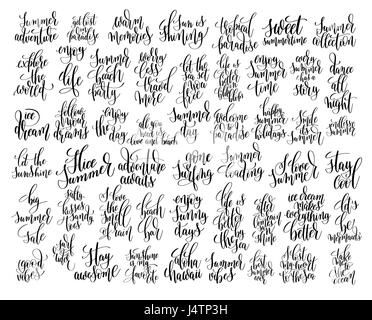 Summer adventure
get lost in paradise
warm memories
Sun is shining
tropical paradise
Sweet summertime
Summer collection
explore the world
enjoy life
Summer beach party
worry less travel more
let the sea set you free
life is better in
enjoy Summer time
every Summer has a story
dance all night
ice dream
follow your dreams
enjoy the day
all you need is love and beach
Summer day
welcome
happy Summer holidays
Smile it's summer
endless summer
let the sunshine
Slice Summer
adventure awaits
gone Surfing
Summer loading
I love Summer
Stay cool
big Summer Sale
Salty kisses Sandy
I love the smell of rain
beach bar
enjoy Sunny days
life is better by the Sea
ice cream makes everything better
let's be mermaids
good vibes
Surf time
Stay awesome
Sunshine is my favorite
aloha hawaii
Summer vibes
best Summer ever
I lost my heart to the Sea
take me to the ocean
alamy
Image ID: J4TP3H
www.alamy.com